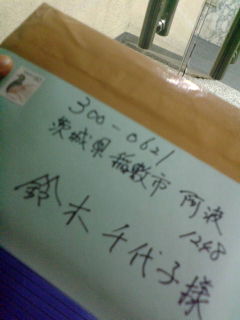 300-0621
茨城県稲敷市 阿波
1248
鈴木千代子様